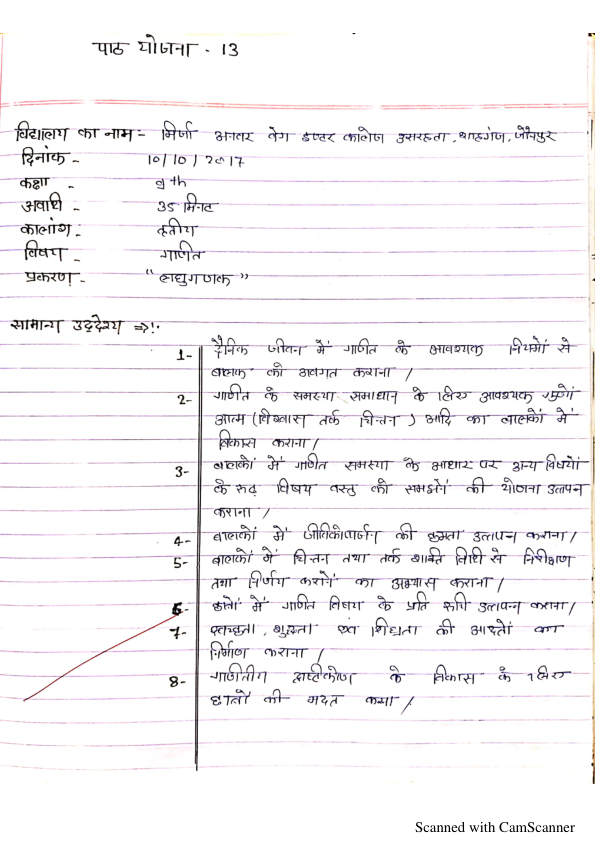 पाठ योजना - 13
विद्यालय का नाम - मिर्जा अनवर बेग इण्टर कालेज उसरहता, शाहगंज, जौनपुर
दिनांक - 10/10/2017
कक्षा - 9th
अवधि - 35 मिनट
कालांश - तृतीय
विषय - गणित
प्रकरण - "लघुगणक"
सामान्य उद्देश्य ⇒:-
1- दैनिक जीवन में गणित के आवश्यक नियमों से
बालक को अवगत कराना /
2- गणित के समस्या समाधान के लिए आवश्यक गुणों
आत्म (विश्वास तर्क चिन्तन) आदि का बालकों में
विकास कराना /
3- बालकों में गणित समस्या के आधार पर अन्य विषयों
के रुढ़ विषय वस्तु को समझने की योजना उत्पन्न
कराना /
4- बालकों में जीविकोपार्जन की क्षमता उत्पन्न कराना /
5- बालकों में चिंतन तथा तर्क शक्ति विधि से निरीक्षण
तथा निर्णय करने का अभ्यास कराना /
6- छात्रों में गणित विषय के प्रति रूचि उत्पन्न कराना /
7- स्वच्छता, शुद्धता एवं शिष्टता की आदतों का
निर्माण कराना /
8- गणितीय दृष्टिकोण के विकास के लिए
छात्रों की मदत करना /
Scanned with CamScanner